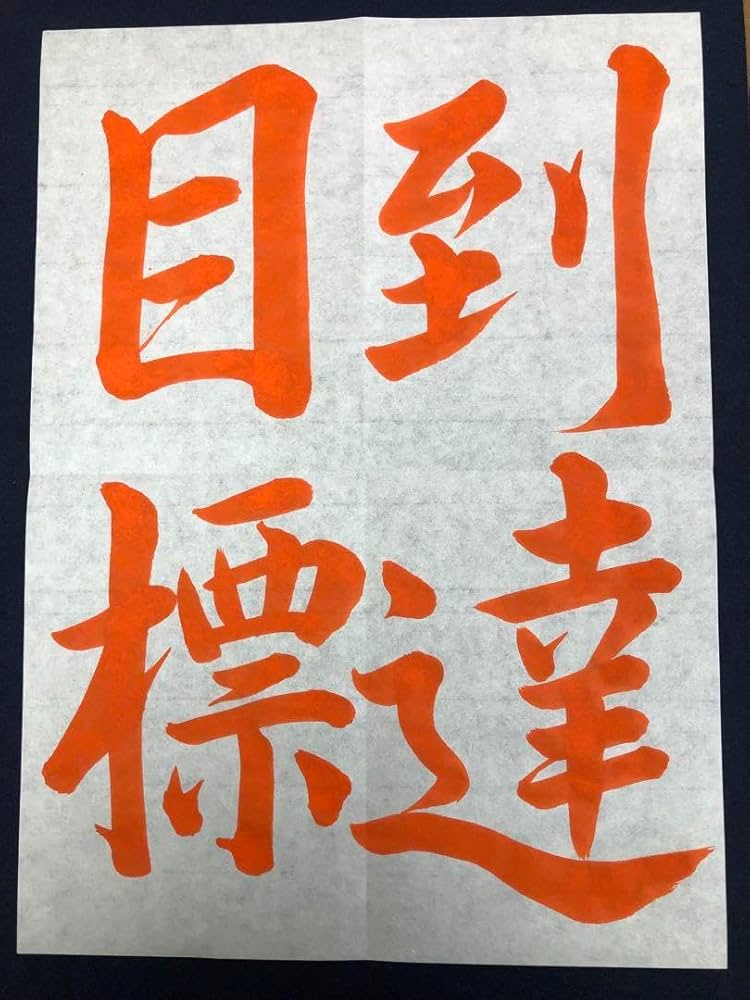 到達
目標